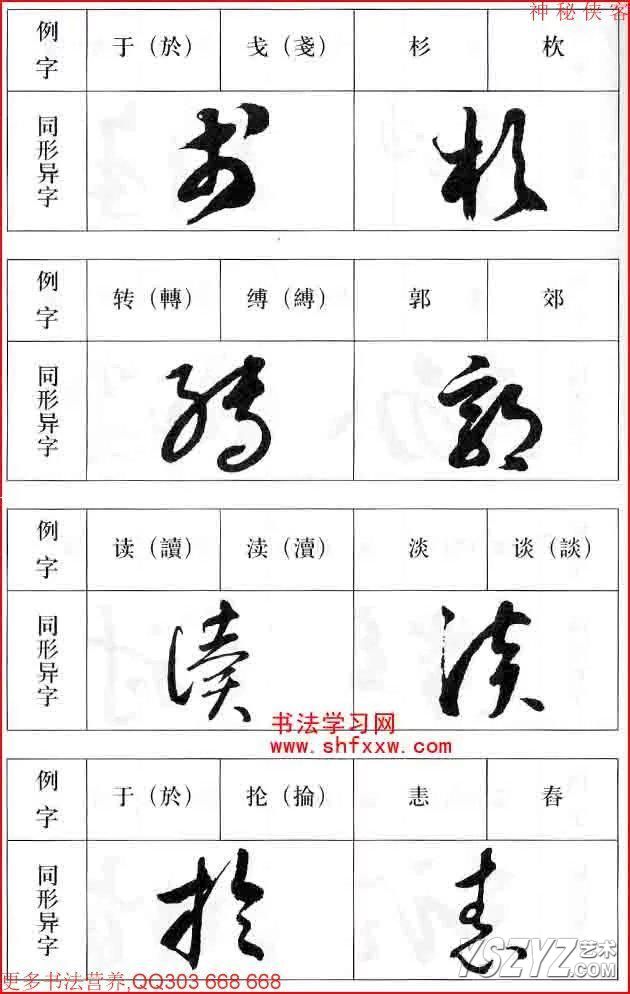 神秘侠客
例字 于（於） 戋（戔） 杉
同形异字
例字 转（轉） 缚（縛） 郭 郊
同形异字
例字 读（讀） 渎（瀆） 淡 谈（談）
同形异字
书法学习网
www.shfxxw.com
例字 于（於） 抡（掄） 恚 春
同形异字
YSZYZ艺术.com
更多书法营养,QQ303 668 668